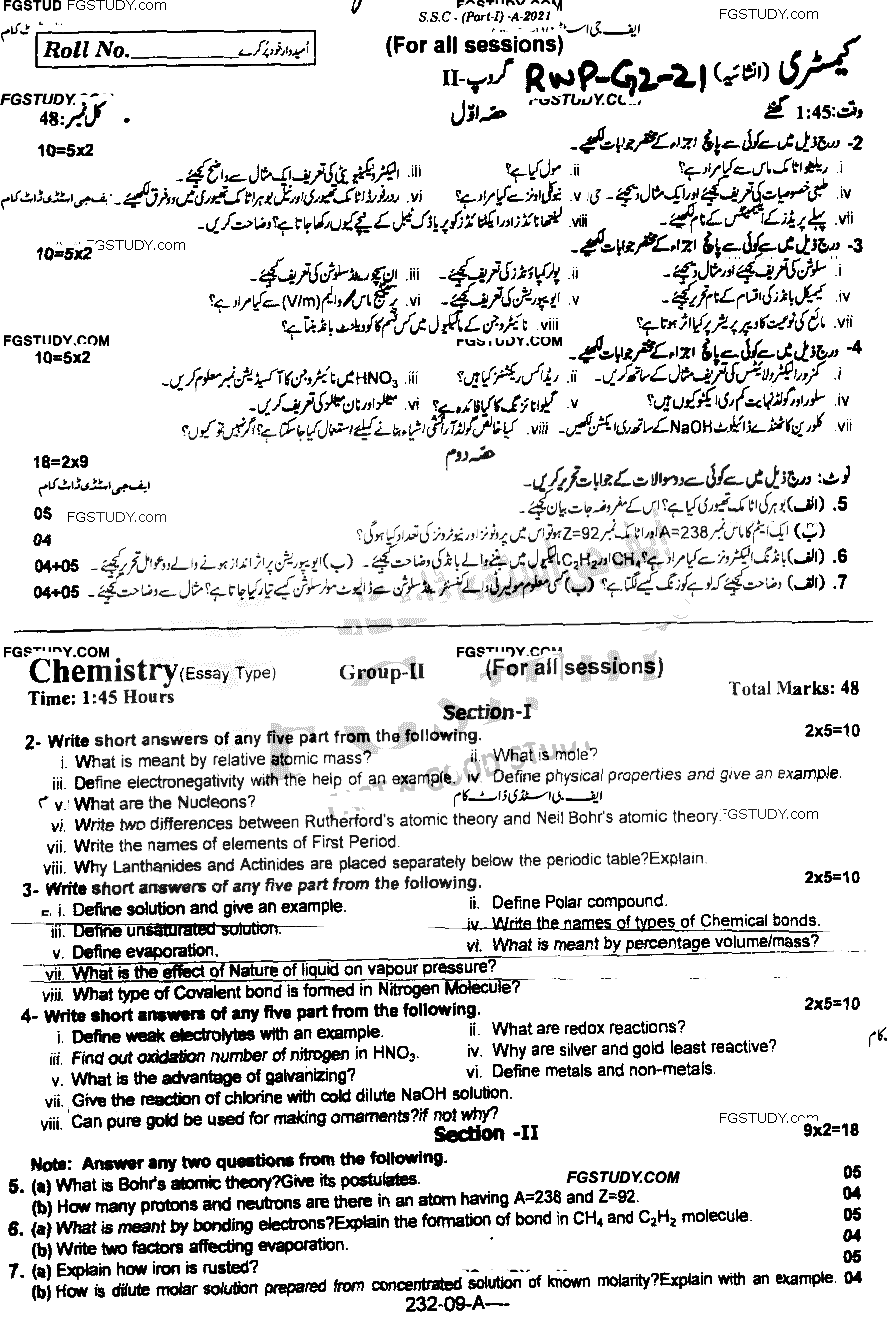 FGSTUD FGSTUDY.com
S.S.C - (Part-I) -A-2021
FGSTUDY.com
(For all sessions)
Roll No. امیدوار خود پُر کرے
کیمسٹری (انشائیہ) RWP-G2-21 گروپ-II
وقت: 1:45 گھنٹے حصہ اوّل کل نمبر: 48
2- درج ذیل میں سے کوئی سے پانچ اجزاء کے مختصر جوابات لکھیئے۔ 10=5x2
i. ریلیٹو اٹامک ماس سے کیا مراد ہے؟ ii. مول کیا ہے؟ iii. الیکٹرونیگیٹیویٹی کی تعریف ایک مثال سے واضح کیجئے۔
iv. طبعی خصوصیات کی تعریف کیجئے اور ایک مثال دیجئے۔ v. نیوکلی اونز سے کیا مراد ہے؟ vi. ردرفورڈ اٹامک تھیوری اور نیل بوہر اٹامک تھیوری میں دو فرق لکھیئے۔
vii. پہلے پیریڈ کے ایلیمنٹس کے نام لکھیئے۔ viii. لینتھانائڈز اور ایکٹنائڈز کو پیریاڈک ٹیبل کے نیچے کیوں رکھا جاتا ہے؟ وضاحت کریں۔
3- درج ذیل میں سے کوئی سے پانچ اجزاء کے مختصر جوابات لکھیئے۔ 10=5x2
FGSTUDY.com
i. سلوشن کی تعریف کیجئے اور مثال دیجئے۔ ii. پولر کمپاؤنڈز کی تعریف کیجئے۔ iii. ان سیچوریٹڈ سلوشن کی تعریف کیجئے۔
iv. کیمیکل بانڈز کی اقسام کے نام تحریر کیجئے۔ v. ایوپوریشن کی تعریف کیجئے۔ vi. پرسنٹیج ماس والیم (V/m) سے کیا مراد ہے؟
vii. مائع کی نوعیت کا ویپر پریشر پر کیا اثر ہوتا ہے؟ viii. نائٹروجن کے مالیکیول میں کس قسم کا کوویلنٹ بانڈ بنتا ہے؟
FGSTUDY.COM
4- درج ذیل میں سے کوئی سے پانچ اجزاء کے مختصر جوابات لکھیئے۔ 10=5x2
i. کمزور الیکٹرولائٹس کی تعریف مثال کے ساتھ کریں۔ ii. ریڈاکس ری ایکشنز کیا ہیں؟ iii. HNO₃ میں نائٹروجن کا آکسیڈیشن نمبر معلوم کریں۔
iv. سلور اور گولڈ نہایت کم ری ایکٹو کیوں ہیں؟ v. گیلوانائزنگ کا کیا فائدہ ہے؟ vi. میٹلز اور نان میٹلز کی تعریف کریں۔
vii. کلورین کا ٹھنڈے ڈائلیوٹ NaOH کے ساتھ ری ایکشن لکھیں۔ viii. کیا خالص گولڈ آرائشی اشیاء بنانے کیلئے استعمال کیا جا سکتا ہے؟ اگر نہیں تو کیوں؟
حصہ دوم 18=2x9
نوٹ: درج ذیل میں سے کوئی سے دو سوالات کے جوابات تحریر کریں۔ ایف جی اسٹڈی ڈاٹ کام
5. (الف) بوہر کی اٹامک تھیوری کیا ہے؟ اس کے مفروضہ جات بیان کیجئے۔ 05 FGSTUDY.com
(ب) ایک ایٹم کا ماس نمبر A=238 اور اٹامک نمبر Z=92 ہو تو اس میں پروٹونز اور نیوٹرونز کی تعداد کیا ہوگی؟ 04
6. (الف) بانڈنگ الیکٹرونز سے کیا مراد ہے؟ CH₄ اور C₂H₂ مالیکیول میں بننے والے بانڈ کی وضاحت کیجئے۔ (ب) ایوپوریشن پر اثر انداز ہونے والے دو عوامل تحریر کیجئے۔ 04+05
7. (الف) وضاحت کیجئے کہ لوہے کو زنگ کیسے لگتا ہے؟ (ب) کسی معلوم مولیرٹی والے کنسنٹریٹڈ سلوشن سے ڈائلیوٹ مولر سلوشن کیسے تیار کیا جاتا ہے؟ مثال سے وضاحت کیجئے۔ 04+05
FGSTUDY.COM FGSTUDY.COM
Chemistry (Essay Type) Group-II (For all sessions)
Time: 1:45 Hours Total Marks: 48
Section-I
2- Write short answers of any five part from the following. 2x5=10
i. What is meant by relative atomic mass? ii. What is mole?
iii. Define electronegativity with the help of an example. iv Define physical properties and give an example.
v. What are the Nucleons? ایف جی اسٹڈی ڈاٹ کام
vi. Write two differences between Rutherford's atomic theory and Neil Bohr's atomic theory. FGSTUDY.com
vii. Write the names of elements of First Period.
viii. Why Lanthanides and Actinides are placed separately below the periodic table?Explain.
3- Write short answers of any five part from the following. 2x5=10
i. Define solution and give an example. ii. Define Polar compound.
iii. Define unsaturated solution. iv. Write the names of types of Chemical bonds.
v. Define evaporation. vi. What is meant by percentage volume/mass?
vii. What is the effect of Nature of liquid on vapour pressure?
viii. What type of Covalent bond is formed in Nitrogen Molecule?
4- Write short answers of any five part from the following. 2x5=10
i. Define weak electrolytes with an example. ii. What are redox reactions?
iii. Find out oxidation number of nitrogen in HNO₃. iv. Why are silver and gold least reactive?
v. What is the advantage of galvanizing? vi. Define metals and non-metals.
vii. Give the reaction of chlorine with cold dilute NaOH solution.
viii. Can pure gold be used for making ornaments?if not why?
FGSTUDY.com
Section -II 9x2=18
Note: Answer any two questions from the following.
5. (a) What is Bohr's atomic theory?Give its postulates. FGSTUDY.COM 05
(b) How many protons and neutrons are there in an atom having A=238 and Z=92. 04
6. (a) What is meant by bonding electrons?Explain the formation of bond in CH₄ and C₂H₂ molecule. 05
(b) Write two factors affecting evaporation. 04
7. (a) Explain how iron is rusted? 05
(b) How is dilute molar solution prepared from concentrated solution of known molarity?Explain with an example. 04
232-09-A----